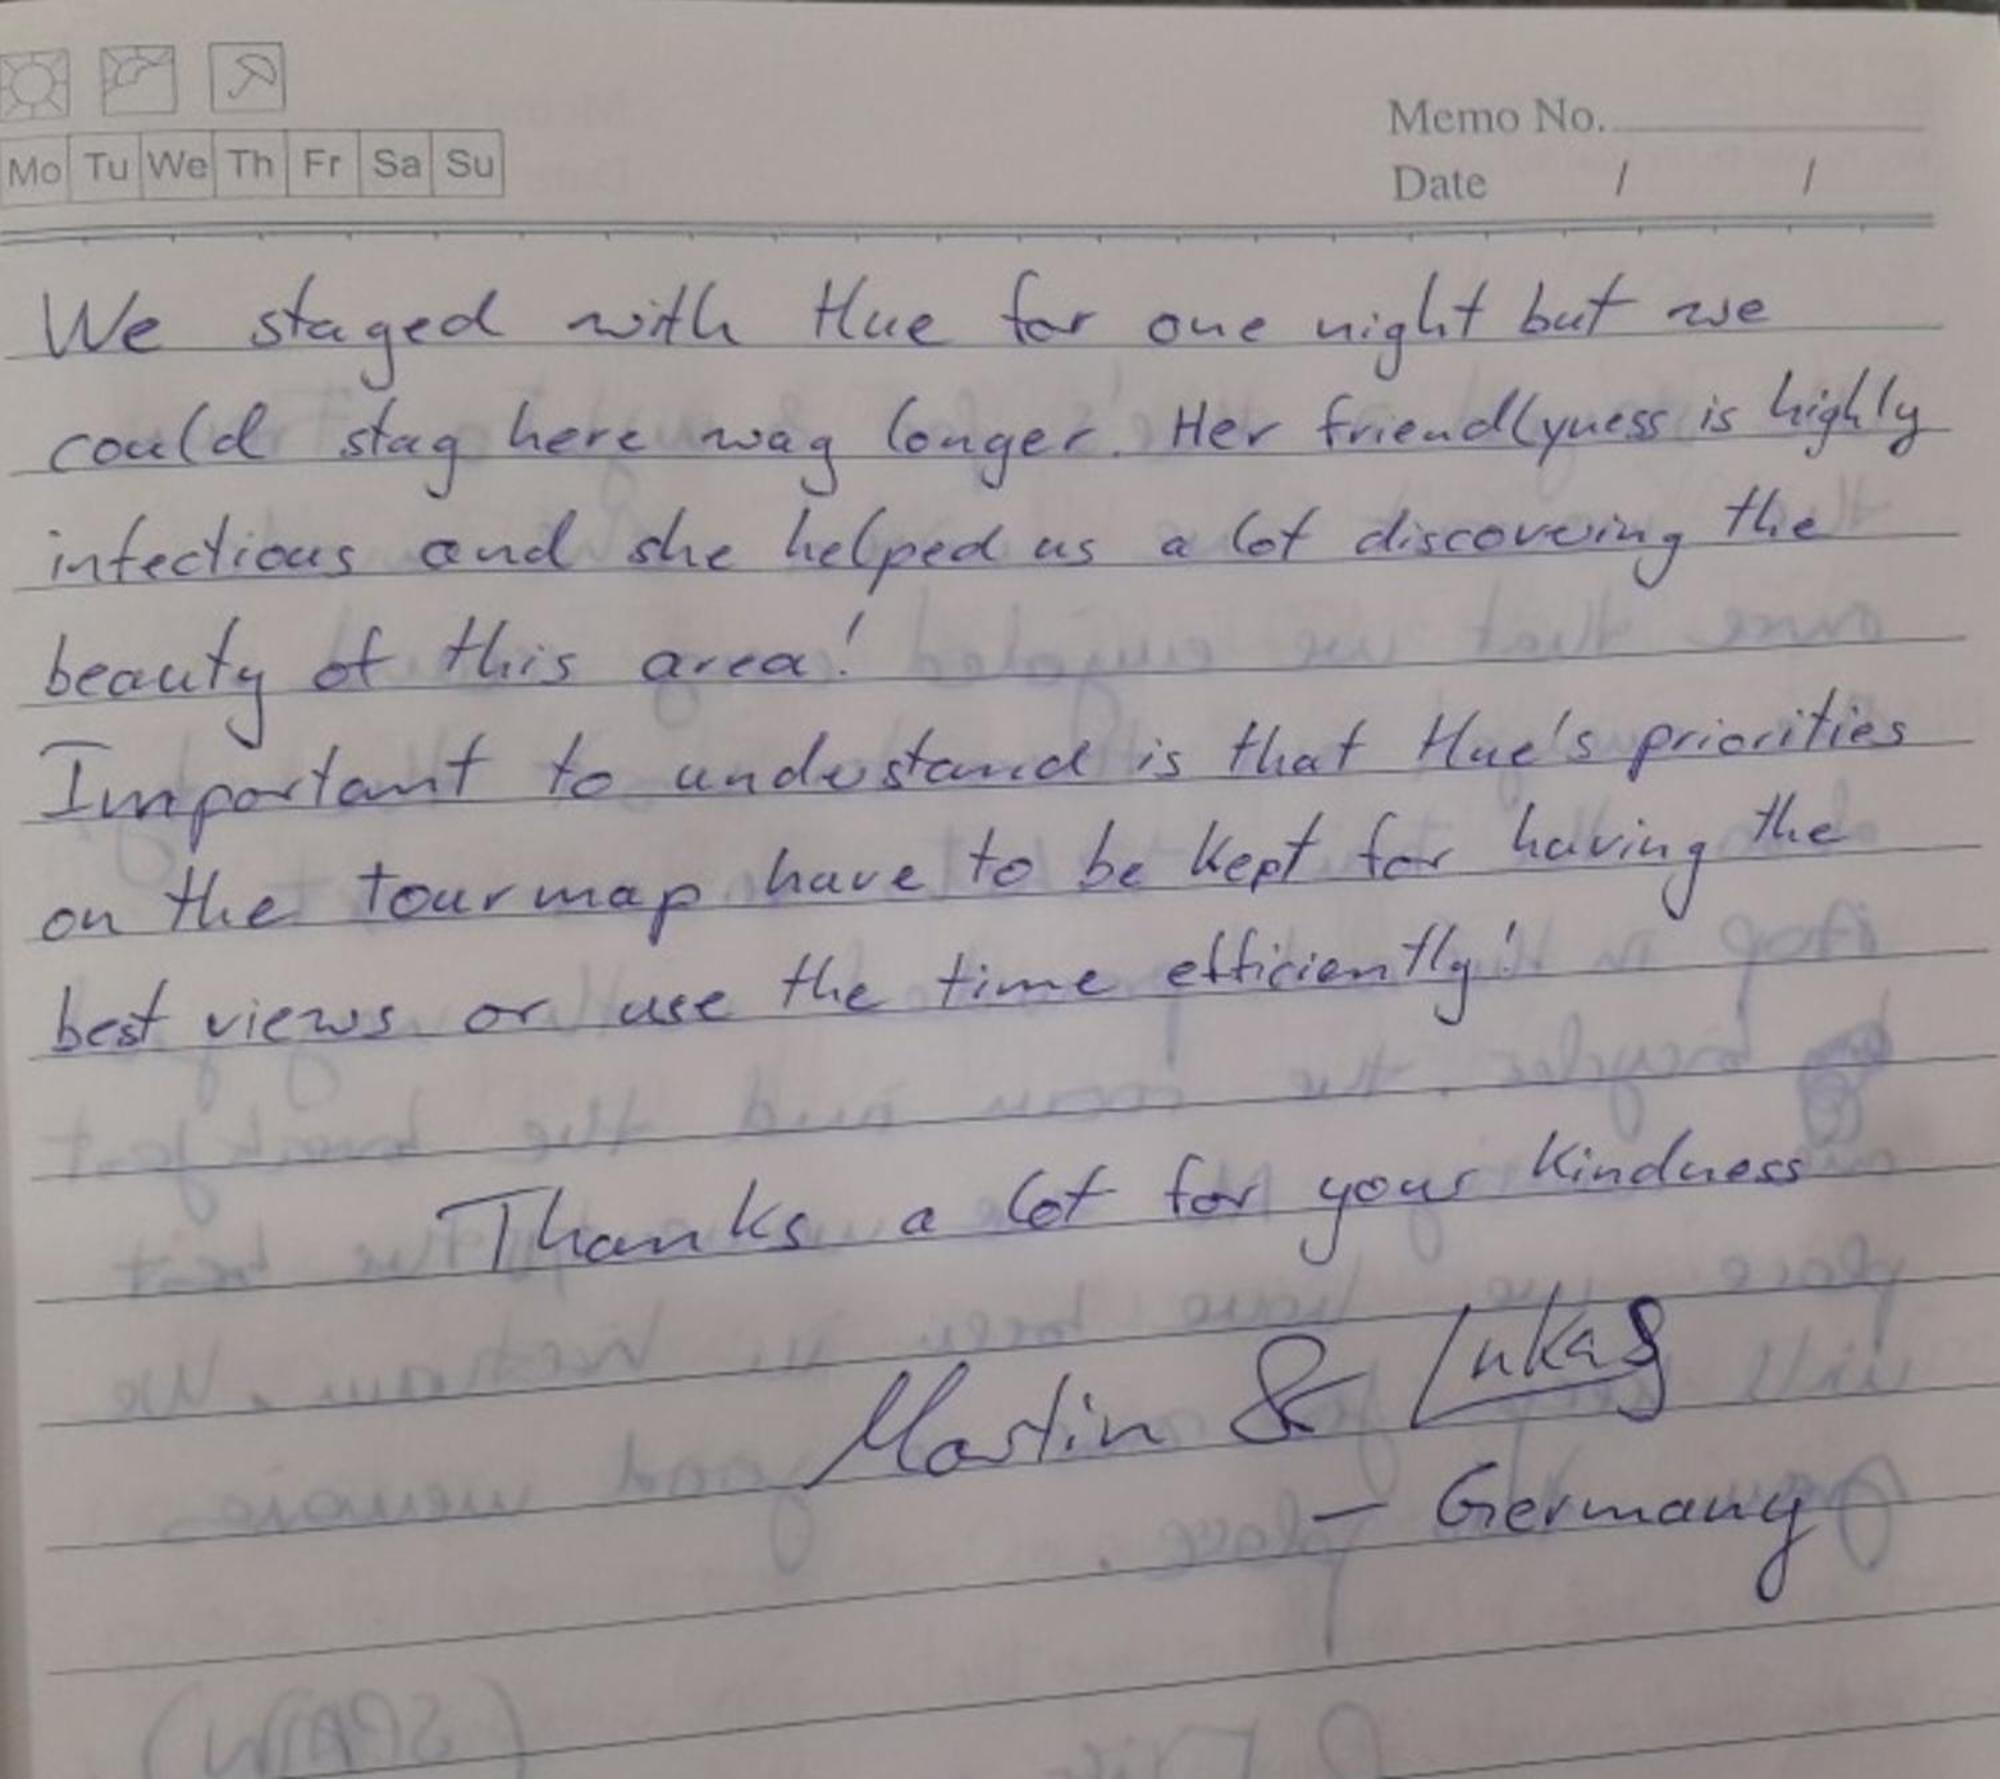 Mo Tu We Th Fr Sa Su
Memo No.
Date / /
We stayed with Hue for one night but we
could stay here way longer. Her friendlyness is highly
infectious and she helped us a lot discovering the
beauty of this area!
Important to understand is that Hue's priorities
on the tourmap have to be kept for having the
best views or use the time efficiently!
Thanks a lot for your kindness
Martin & Lukas
— Germany
(SPAIN)